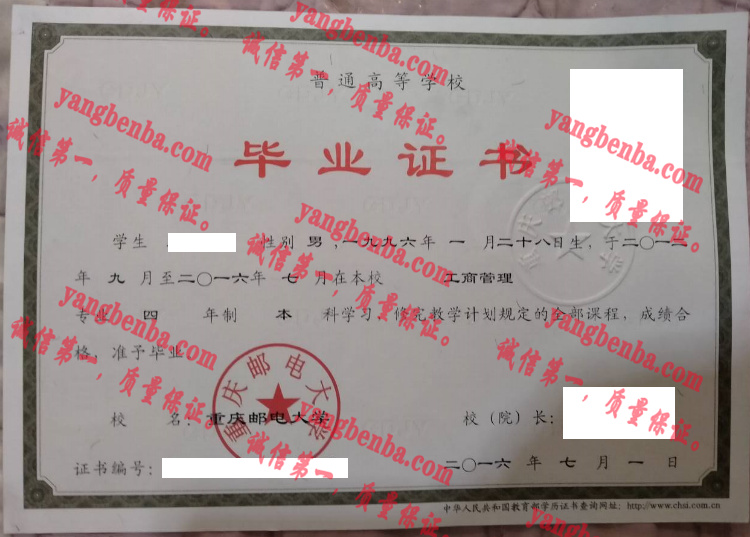 普通高等学校
毕业证书
学生 性别 男，一九九六年 一 月二十八日生，于二〇一二
年 九 月至二〇一六年 七 月在本校 工商管理
专业 四 年制 本 科学习，修完教学计划规定的全部课程，成绩合
格，准予毕业
校 名：重庆邮电大学
校（院）长：
证书编号：
二〇一六 年 七 月 一 日
中华人民共和国教育部学历证书查询网址：http://www.chsi.com.cn
重庆邮电大学
yangbenba.com
诚信第一，质量保证。
yangbenba.com
诚信第一，质量保证。
yangbenba.com
诚信第一，质量保证。
yangbenba.com
诚信第一，质量保证。
yangbenba.com
诚信第一，质量保证。
yangbenba.com
诚信第一，质量保证。
yangbenba.com
诚信第一，质量保证。
yangbenba.com
诚信第一，质量保证。